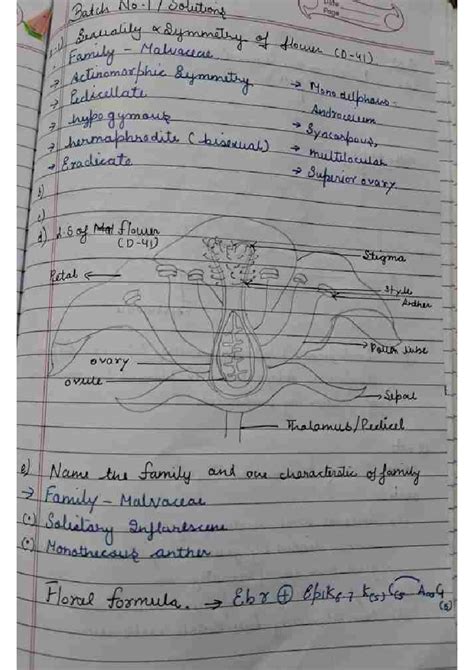 Date
Page
Batch No.-1 / Solutions
Sexuality & Symmetry of flower (D-41)
Family - Malvaceae
→ Actinomorphic Symmetry
→ Pedicellate
→ hypogymous
→ hermaphrodite (bisexual)
→ Eradicate
→ Monodelphous-
Androecium
→ Syncarpous,
→ multilocular
→ Superior ovary
b)
c)
d) L.S of flower
(D-41)
Stigma
Petal
Style
Anther
Pollen tube
ovary
ovule
Sepal
Thalamus/Pedicel
e) Name the family and one characteristic of family
→ Family - Malvaceae
(•) Solitary Inflorescene
(•) Monothecous anther
Floral formula. → Ebr ⊕